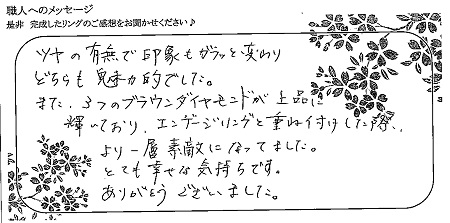 職人へのメッセージ
是非 完成したリングのご感想をお聞かせください♪
ツヤの有無で印象もガラッと変わり
どちらも魅力的でした。
また、3つのブラウンダイヤモンドが上品に
輝いており、エンゲージリングと重ね付けした際、
より一層素敵になってました。
とても幸せな気持ちです。
ありがとうございました。